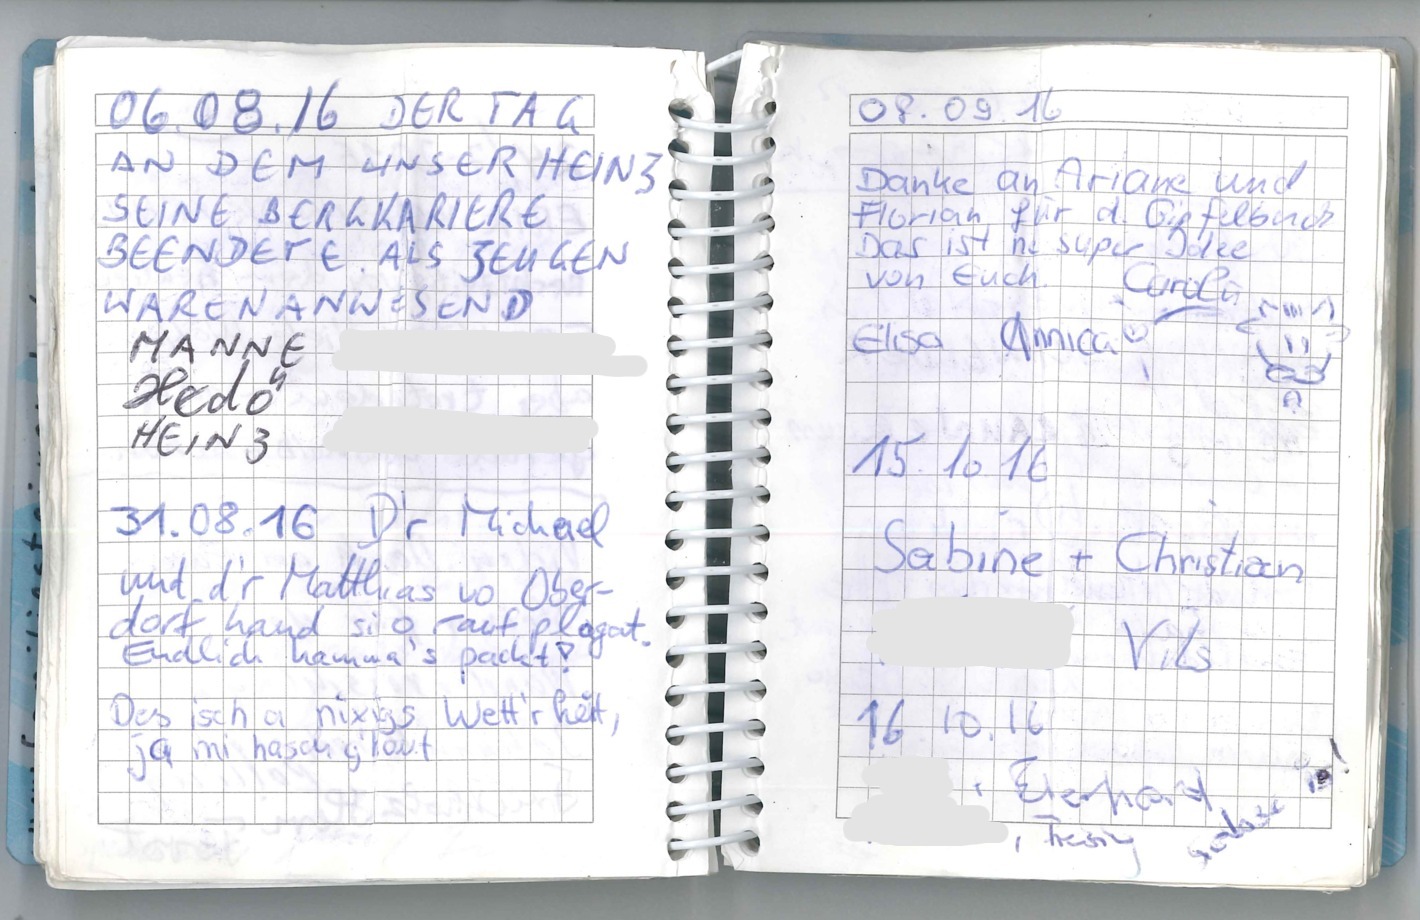 06.08.16 DER TAG
AN DEM UNSER HEINZ
SEINE BERGKARIERE
BEENDETE. ALS ZEUGEN
WAREN ANWESEND
MANNE
HEINZ
31.08.16 D'r Michael
und d'r Matthias vo Ober-
dorf hand si o rauf plagat.
Endlich hamma's packt!
Des isch a nixigs Wett'r heit,
ja mi hasch g'höut
08.09.16
Danke an Ariane und
Florian für d. Gipfelbuch
Das ist ne super Idee
von Euch. Carola
Elisa Annica
15.10.16
Sabine + Christian
Vils
16.10.16
Eberhard